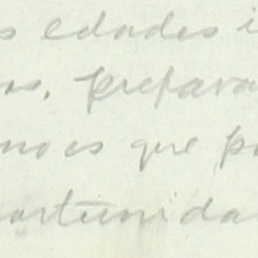 s edades i
os, prepara
no es que po
ortunida